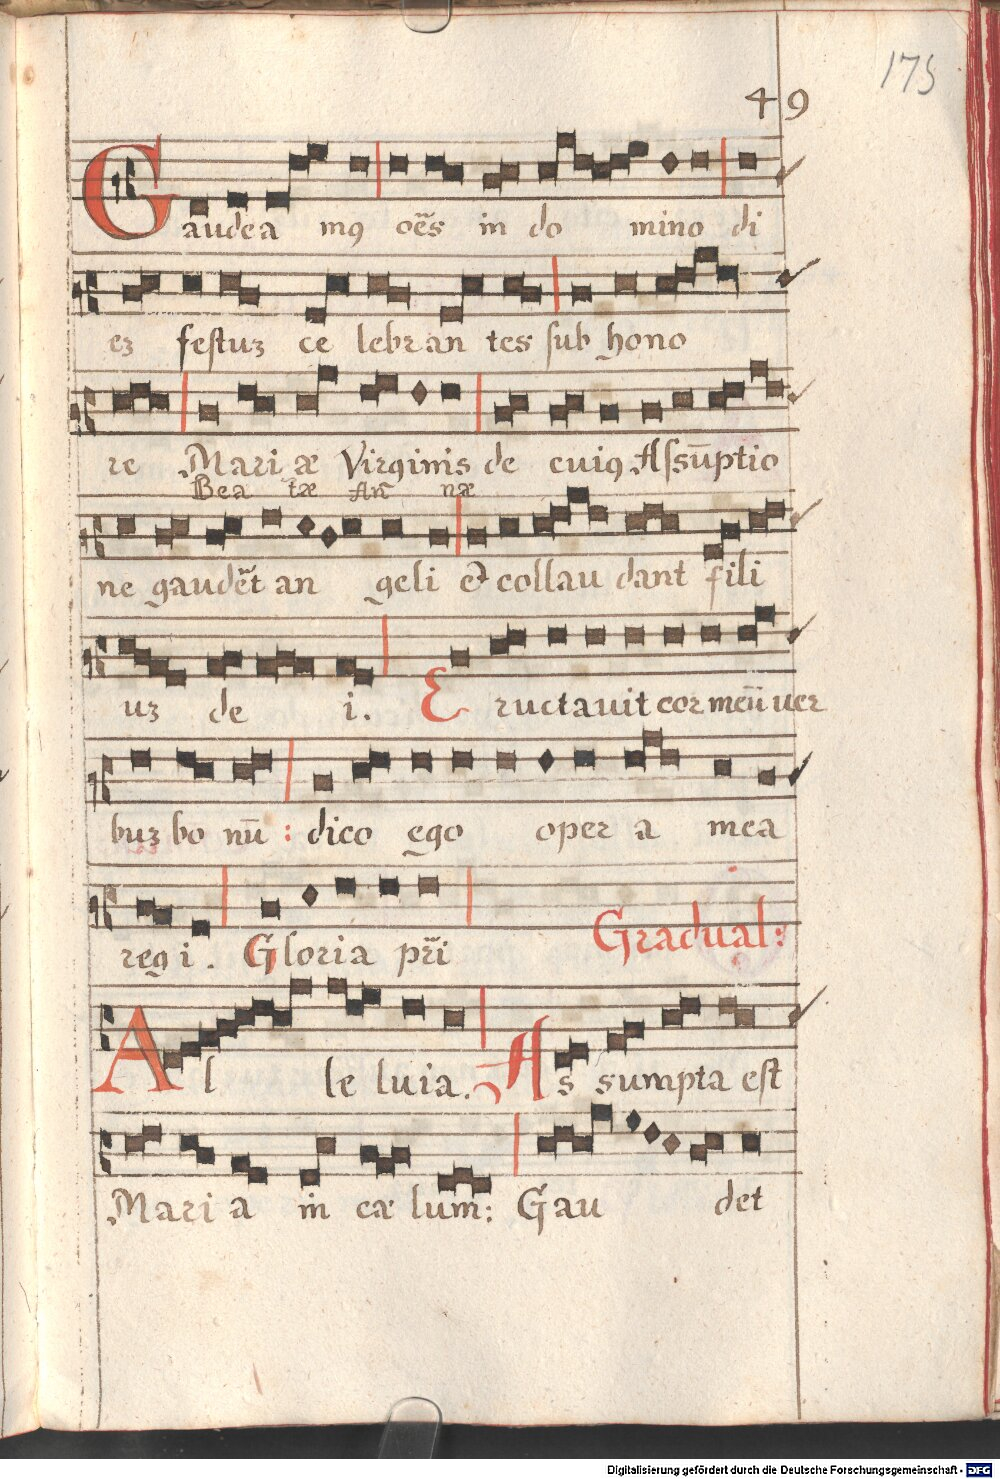 175
49
Gaudea mꝯ oēs in do mino di
eȝ festuȝ ce lebran tes sub hono
re Mari æ Virginis de cuiꝯ Assūptio
Bea tæ An̄ næ
ne gaudēt an geli et collau dant fili
uȝ de i. Eructavit cor meū ver
buȝ bo nū : dico ego oper a mea
regi. Gloria pr̄i
Gradual:
Al le luia. As sumpta est
Mari a in cæ lum: Gau det
Digitalisierung gefördert durch die Deutsche Forschungsgemeinschaft - DFG